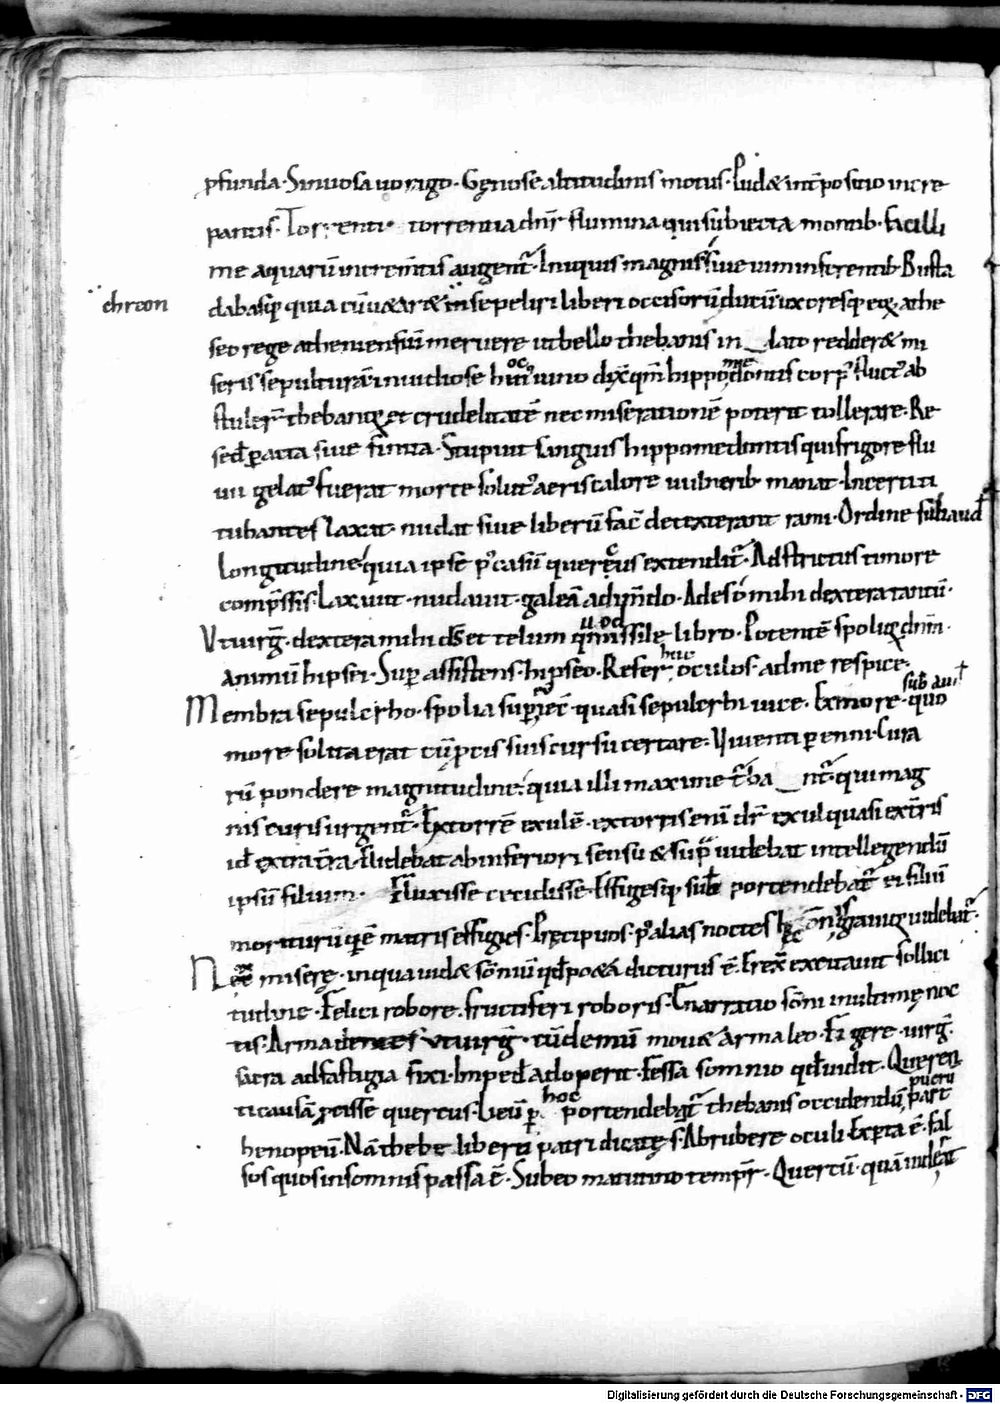 pfunda. Sinuosa uorago. Gęnose altitudinis motus. ludæ int̄positio incre
pantis. Torrenti torrentia dn̄r flumina qui subiecta montib. facilli
me aquarū incrementis augent̄. In uquis magnis siue uim inferentib. Busta
chreon
dabasiꝑ quia cū uetaræ in sepeliri liberi occisorū ducū uxoresq; eoꝝ athe
seo rege atheniensiū meruere ut bello thebanis in lato redderæ mi
seris sepulturā inuidiose huic uino dix̄ qm̄ hippomedontis corp' fluct' ab
stuler̄ thebanoꝝ et crudelitatē nec miserationē poterit tollerare. Re
sed ꝑacta siue finita. Stupuit sanguis hippomedontis qui frigore flu
uii gelat' fuerat morte solut' aeris calore uulnerib manat. Incerti ti
tubantes laxat. nudat siue liberū fac̄ detexerant rami. Ordine sub aud
longitudine quia ipse p' casū quercus extendit̄. Adstrictus timore
comp̄ssis. Laxauit. nudauit. galeā adimendo. Ades ō mihi dextera tantū.
Vt uirḡ. dextera mihi ds̄ et telum quod missile libro. Potentē spolioꝝ dn̄m.
animū hipsei. Suꝑ assistens hipseo. Refer huc oculos. ad me respice.
Membra sepulcrho. spolia superiec̄ quasi sepulcrhi uice. Ex more. quo sub aui
more solita erat cū ꝓcis suis cursu certare. Viuenti perenni. Cura
rū pondere magnitudine. quia illi maxime t̄ba nt̄ qui mag
nis curis urgent̄. Extorrē exulē. extorris enī dr̄ exul quasi ext̄ris
id extra t̄ra. Fledebat ab inferiori sensu & sup̄ uidebat intellegendū
ipsū filium. Fluxisse cecidisse. Effigesiq; sub portendebat̄ ei filiū
moriturū q; ē matris effigies. Pręcipuos. p' alias noctes gauioꝝ uidebat̄.
Nocte miserę. in qua uidæ somniū qd̄ poeta dicturus ē. Erex̄ excitauit sollici
tudine. Felici robore. fructiferi roboris. Enarratio somni in ultimę noc
tis. Armadentes ut uirḡ. tū demū mouæ arma leo. Figere. uirḡ.
sacra ad fastigia fixi. Imped' ad operit. Fessa somnio qd̄ uidit. Queren
ti causā ꝓcisse quercus. Leuū ꝑ hoc portendebat̄ thebanis occidendū puerū part
henopeū. Nā thebe liberi patri dicatę s̄. Abrubere oculi Exꝑta ē. fal
sos quos in somnis passa ē. Subeo matutino tempr̄. Quertū. quā uideat